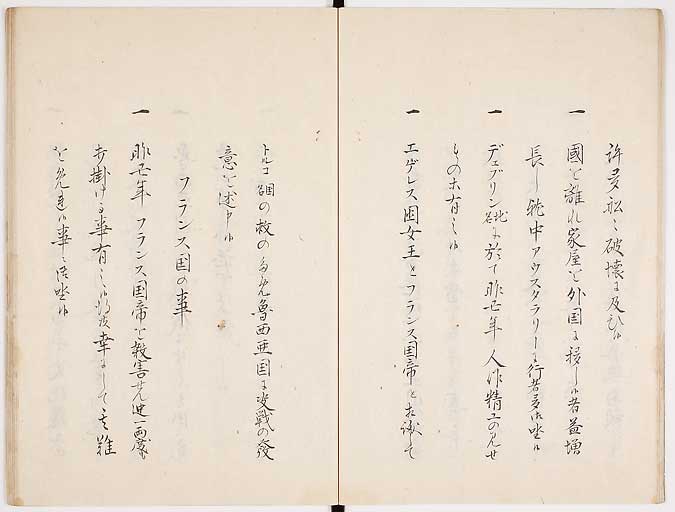 許多船々破壊に及ひ候
一 國を離れ家屋を外国に移し候者益増
長し就中アウスタラリーに行者多御坐候
一 デュブリン地名に於て昨丑年人作精工の見せ
もの等有之候
一 エゲレス国女王とフランス国帝と相議して
トルコ国の救の為魯西亜国に交戦の發
意を述申候
フランス国の事
一 昨丑年フランス国帝を殺害せん迚両度も
仕掛ける事有之候得共幸にして其難
を免連候事に御坐候